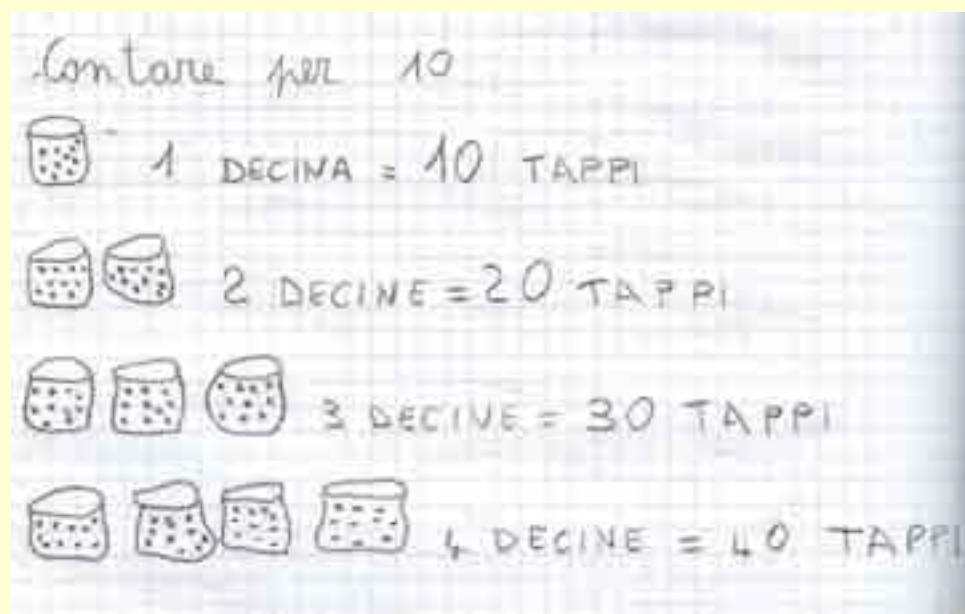 Contare per 10
1 DECINA = 10 TAPPI
2 DECINE = 20 TAPPI
3 DECINE = 30 TAPPI
4 DECINE = 40 TAPPI